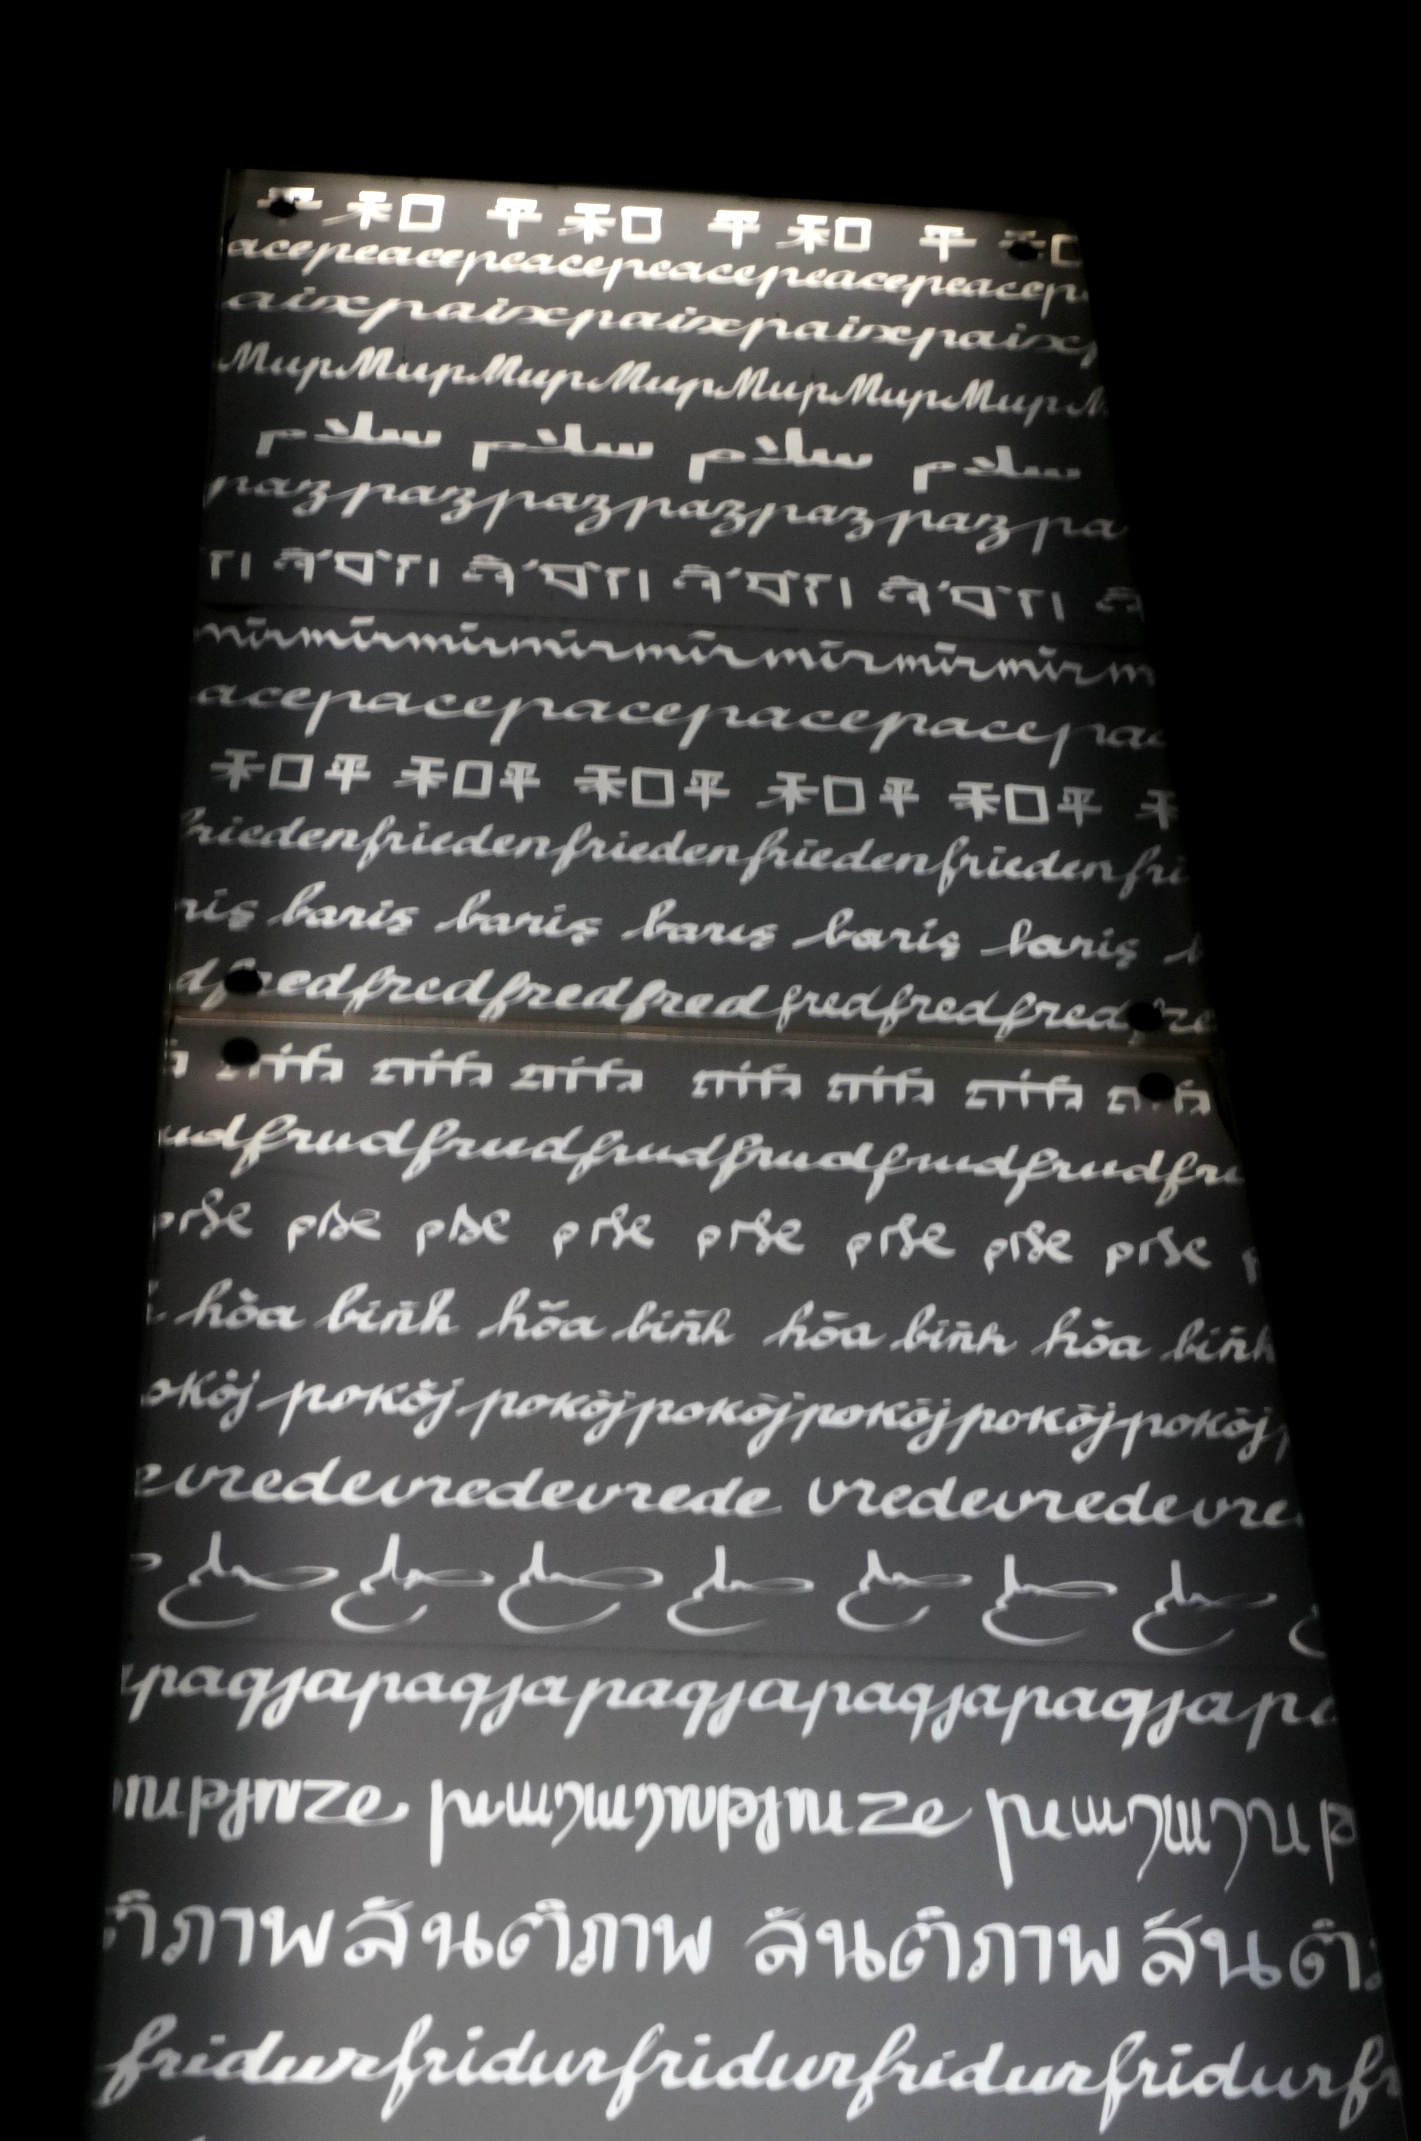 平和 平和 平和 平和
acepeacepeacepeacepeacepeacep
aixpaixpaixpaixpaixpaix
МирМирМирМирМирМирМирМ
سلام سلام سلام سلام
pazpazpazpazpazpazpa
mīrmīrmīrmīrmīrmīrmīrmīrm
acepacepacepacepacepac
和平 和平 和平 和平 和平 和
friedenfriedenfriedenfriedenfriedenfri
riş bariş bariş barış bariş bariş b
dfredfredfredfred fredfredfred fre
udfrudfrudfrudfrudfrudfrudfru
hòa biñh hõa biñh hõa biñh hỏa biñh
okój pokój pokój pokój pokój pokój pokój
evredevredevrede vredevredevre
apaqjapaqjapaqjapaqjapaqjapa
ติภาพสันติภาพ สันติภาพสันติ
fridurfridurfridurfridurfridurfr